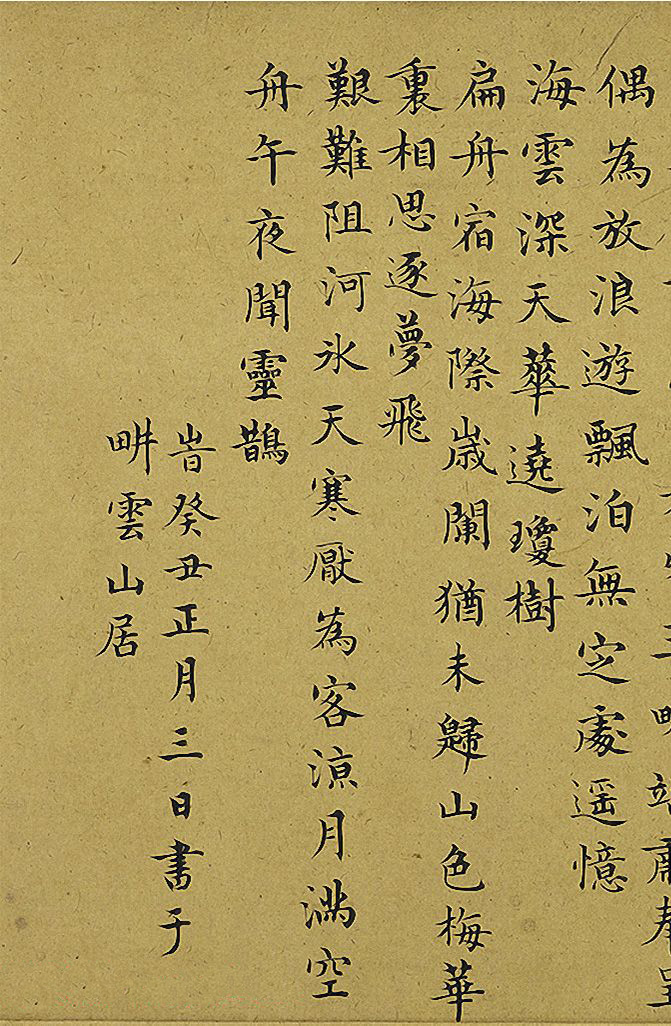 偶為放浪遊飄泊無㝎處遥憶
海雲深天華遶瓊樹
扁舟宿海際歲闌猶未歸山色梅華
裏相思逐夢飛
艱難阻河氷天寒厭為客涼月滿空
舟午夜聞靈鵲
旹癸丑正月三日書于
畊雲山居